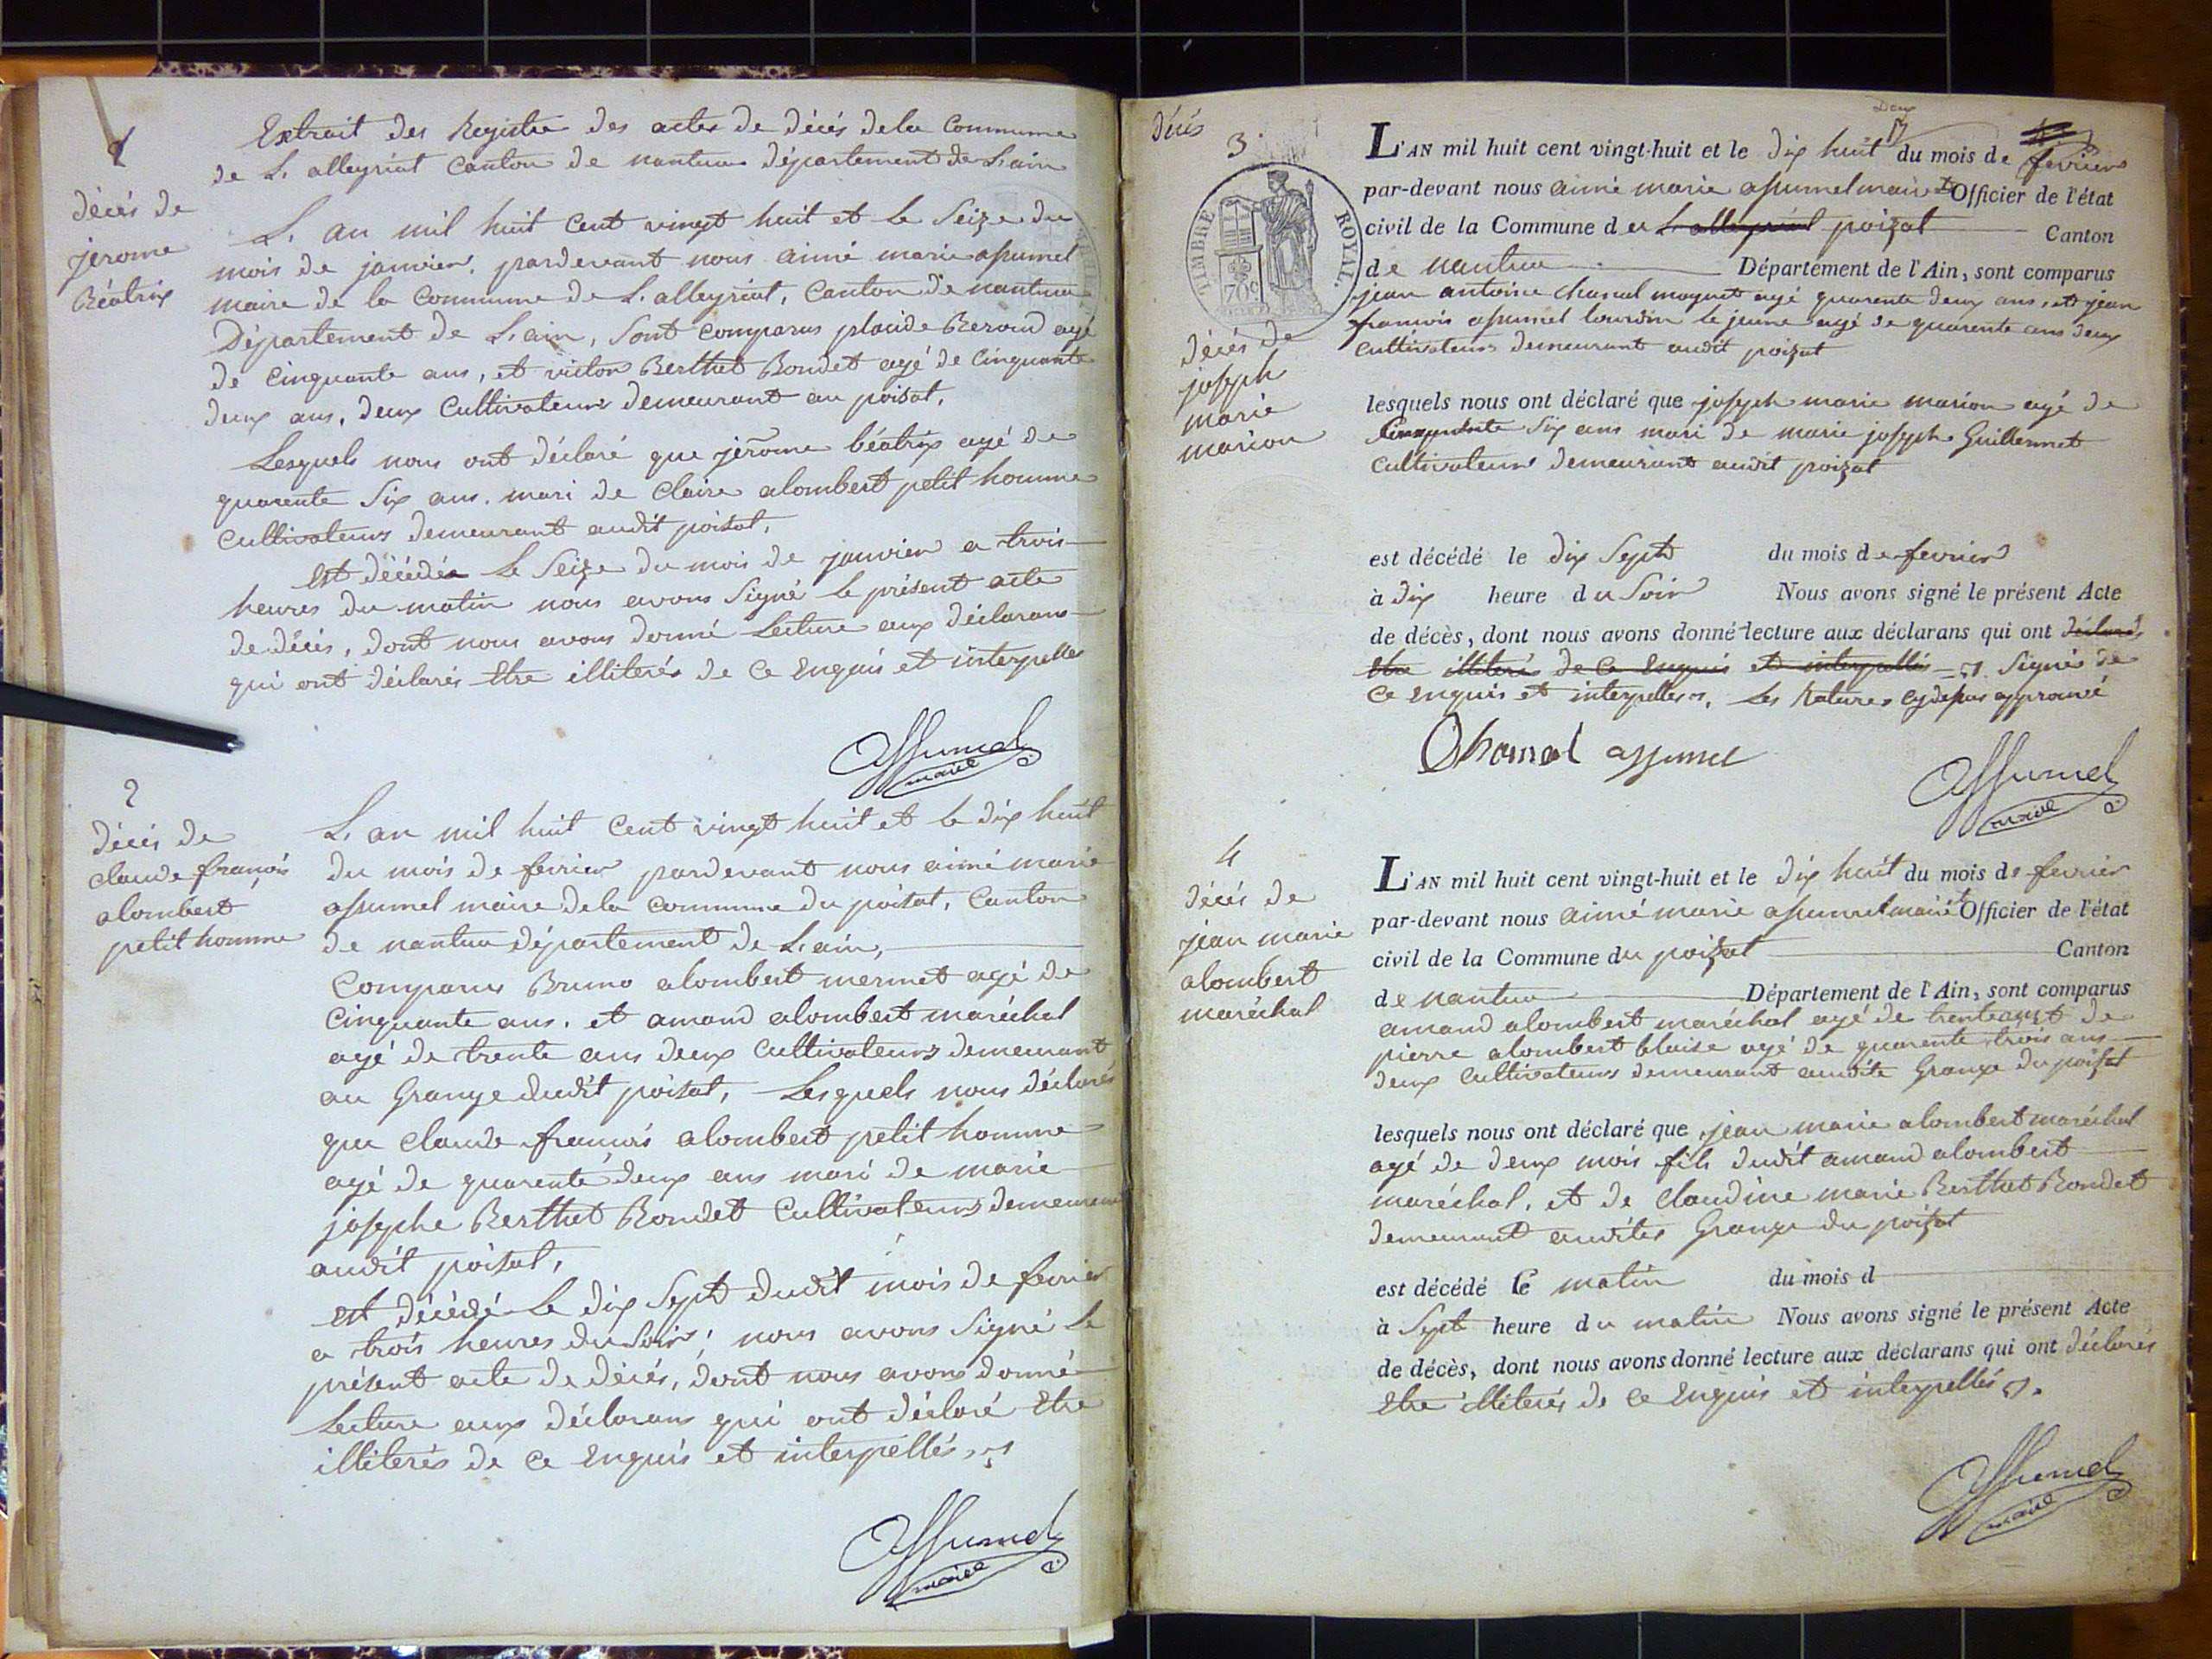 1
Extrait des Registre des actes de décés dela Commune
de L. alleyriat Canton de nantua département de L. ain
décés de
jerome
Béatrix
L. an mil huit Cent vingt huit et le Seize du
mois de janvier. pardevant nous aimé marie assumel
maire de la Commune de L. alleyriat, Canton de nantua
Département de L. ain, Sont Comparus placide Beroud agé
de Cinquante ans, et victor Berthet Bondet agé de Cinquante
deux ans, deux Cultivateurs demeurant au poisat,
Lesquels nous ont déclaré que jérome béatrix agé de
quarente Six ans. mari de Claire alombert petit homme
Cultivateurs demeurant audit poisat,
est décédée Le Seize du mois de janvier a trois
heures du matin nous avons Signé le présent acte
de décés, dont nous avons donné Lecture aux déclarans
qui ont déclarés Etre illiterés de Ce Enquis et interpellés
Assumel
maire
2
décés de
claude françois
alombert
petit homme
L. an mil huit Cent vingt huit et le dix huit
du mois de fevrier pardevant nous aimé marie
assumel maire dela Commune du poisat, Canton
de nantua département de L. ain,
Comparus Bruno alombert mermet agé de
Cinquante ans. et amand alombert maréchal
agé de trente ans deux Cultivateurs demeurant
au Grange dudit poisat, Lesquels nous déclarés
que claude françois alombert petit homme
agé de quarente deux ans mari de marie
josephe Berthet Bondet Cultivateurs demeurant
audit poisat,
est décédé Le dix Sept dudit mois de fevrier
a trois heures du Soir; nous avons Signé Le
présent acte de décés, dont nous avons donné
Lecture aux déclarans qui ont déclaré Etre
illiterés de Ce Enquis et interpellés
Assumel
maire
décés
3
TIMBRE ROYAL.
70c
décés de
joseph
marie
marion
L'AN mil huit cent vingt-huit et le dix huit du mois de fevrier
par-devant nous aimé marie assumel maire Officier de l'état
civil de la Commune du L. alleyriat poizat Canton
de nantua Département de l'Ain, sont comparus
jean antoine Chanal moynet agé quarente deux ans, et jean
francois assumel lourdin le jeune agé de quarente ans deux
Cultivateurs demeurant audit poizat
lesquels nous ont déclaré que joseph marie marion agé de
Cinquante Six ans mari de marie joseph Guillermet
Cultivateurs demeurant audit poizat
est décédé le dix Sept du mois de fevrier
à dix heure du Soir Nous avons signé le présent Acte
de décès, dont nous avons donné lecture aux déclarans qui ont déclarés
Etre illiterés de Ce Enquis et interpellés Signés de
Ce enquis et interpellés. Les Ratures cydessus approuvé
Chanal assumel
Assumel
maire
4
décés de
jean marie
alombert
maréchal
L'AN mil huit cent vingt-huit et le dix huit du mois de fevrier
par-devant nous aimé marie assumel maire Officier de l'état
civil de la Commune du poizat Canton
de nantua Département de l'Ain, sont comparus
amand alombert maréchal agé de trente ans et de
pierre alombert blaise agé de quarente trois ans
deux Cultivateurs demeurant audite Grange du poizat
lesquels nous ont déclaré que jean marie alombert maréchal
agé de deux mois fils dudit amand alombert
maréchal, et de Claudine marie Berthet Bondet
demeurant audites Grange du poizat
est décédé Ce matin du mois d
à Sept heure du matin Nous avons signé le présent Acte
de décès, dont nous avons donné lecture aux déclarans qui ont déclarés
Etre illiterés de Ce Enquis et interpellés
Assumel
maire